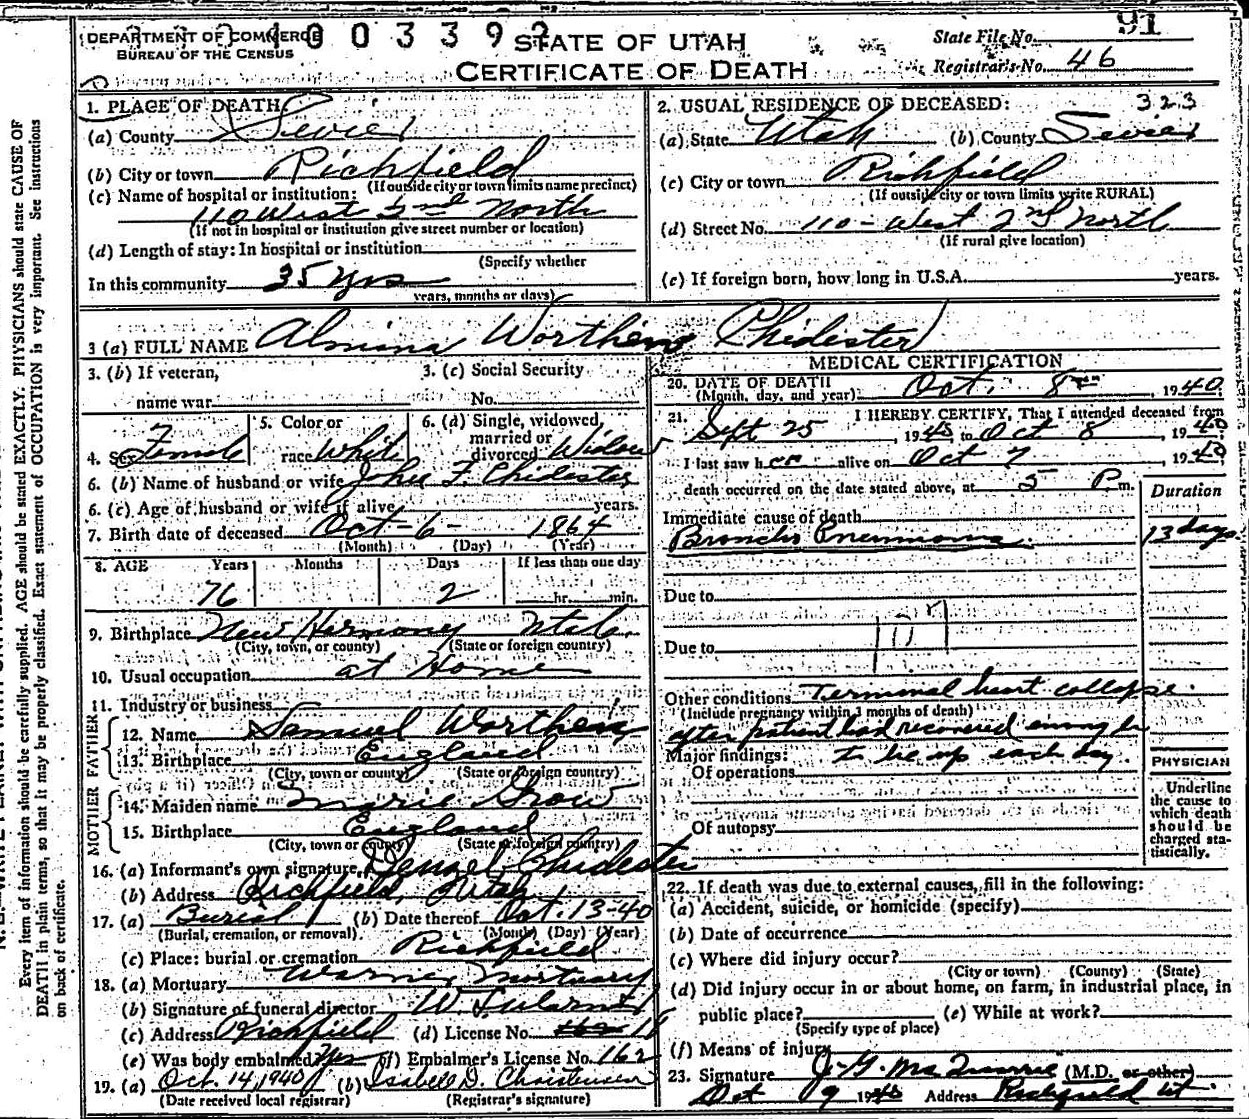 DEPARTMENT OF COMMERCE
BUREAU OF THE CENSUS
STATE OF UTAH
CERTIFICATE OF DEATH
State File No. 91
Registrar's No. 46
1. PLACE OF DEATH
(a) County Sevier
(b) City or town Richfield
(If outside city or town limits name precinct)
(c) Name of hospital or institution:
110 West 2nd North
(If not in hospital or institution give street number or location)
(d) Length of stay: In hospital or institution
(Specify whether
In this community 35 yrs
years, months or days)
2. USUAL RESIDENCE OF DECEASED: 323
(a) State Utah (b) County Sevier
(c) City or town Richfield
(If outside city or town limits write RURAL)
(d) Street No. 110 - West 2nd North
(If rural give location)
(e) If foreign born, how long in U.S.A. years.
3 (a) FULL NAME Almina Worthen Chidester
3. (b) If veteran,
name war
3. (c) Social Security
No.
4. Sex Female
5. Color or
race White
6. (a) Single, widowed,
married or
divorced Widow
6. (b) Name of husband or wife John F. Chidester
6. (c) Age of husband or wife if alive years.
7. Birth date of deceased Oct - 6 - 1864
(Month) (Day) (Year)
8. AGE Years Months Days If less than one day
76 2 hr. min.
9. Birthplace New Harmony Utah
(City, town, or county) (State or foreign country)
10. Usual occupation at Home
11. Industry or business
FATHER
12. Name Samuel Worthen
13. Birthplace England
(City, town or county) (State or foreign country)
MOTHER
14. Maiden name Marie Grow
15. Birthplace England
(City, town or county) (State or foreign country)
16. (a) Informant's own signature Denzel Chidester
(b) Address Richfield, Utah
17. (a) Burial (b) Date thereof Oct. 13-40
(Burial, cremation, or removal) (Month) (Day) (Year)
(c) Place: burial or cremation Richfield
18. (a) Mortuary Warner Mortuary
(b) Signature of funeral director
(c) Address Richfield (d) License No.
(e) Was body embalmed? Yes (f) Embalmer's License No. 162
19. (a) Oct. 14, 1940 (b) Isabell D. Christensen
(Date received local registrar) (Registrar's signature)
MEDICAL CERTIFICATION
20. DATE OF DEATH
(Month, day, and year) Oct. 8th, 1940
21. I HEREBY CERTIFY, That I attended deceased from
Sept 25, 1940 to Oct 8, 1940
I last saw her alive on Oct 7, 1940
death occurred on the date stated above, at 5 P.m.
Duration
Immediate cause of death
Broncho Pneumonia 13 days
Due to
107
Due to
Other conditions Terminal heart collapse
(Include pregnancy within 3 months of death)
after patient had recovered enough
Major findings: to be up each day.
Of operations
Of autopsy
PHYSICIAN
Underline
the cause to
which death
should be
charged sta-
tistically.
22. If death was due to external causes, fill in the following:
(a) Accident, suicide, or homicide (specify)
(b) Date of occurrence
(c) Where did injury occur?
(City or town) (County) (State)
(d) Did injury occur in or about home, on farm, in industrial place, in
public place? (e) While at work?
(Specify type of place)
(f) Means of injury
23. Signature (M.D. or other)
Oct 9 1940 Address Richfield Ut.
Every item of information should be carefully supplied. AGE should be stated EXACTLY. PHYSICIANS should state CAUSE OF
DEATH in plain terms, so that it may be properly classified. Exact statement of OCCUPATION is very important. See instructions
on back of certificate.